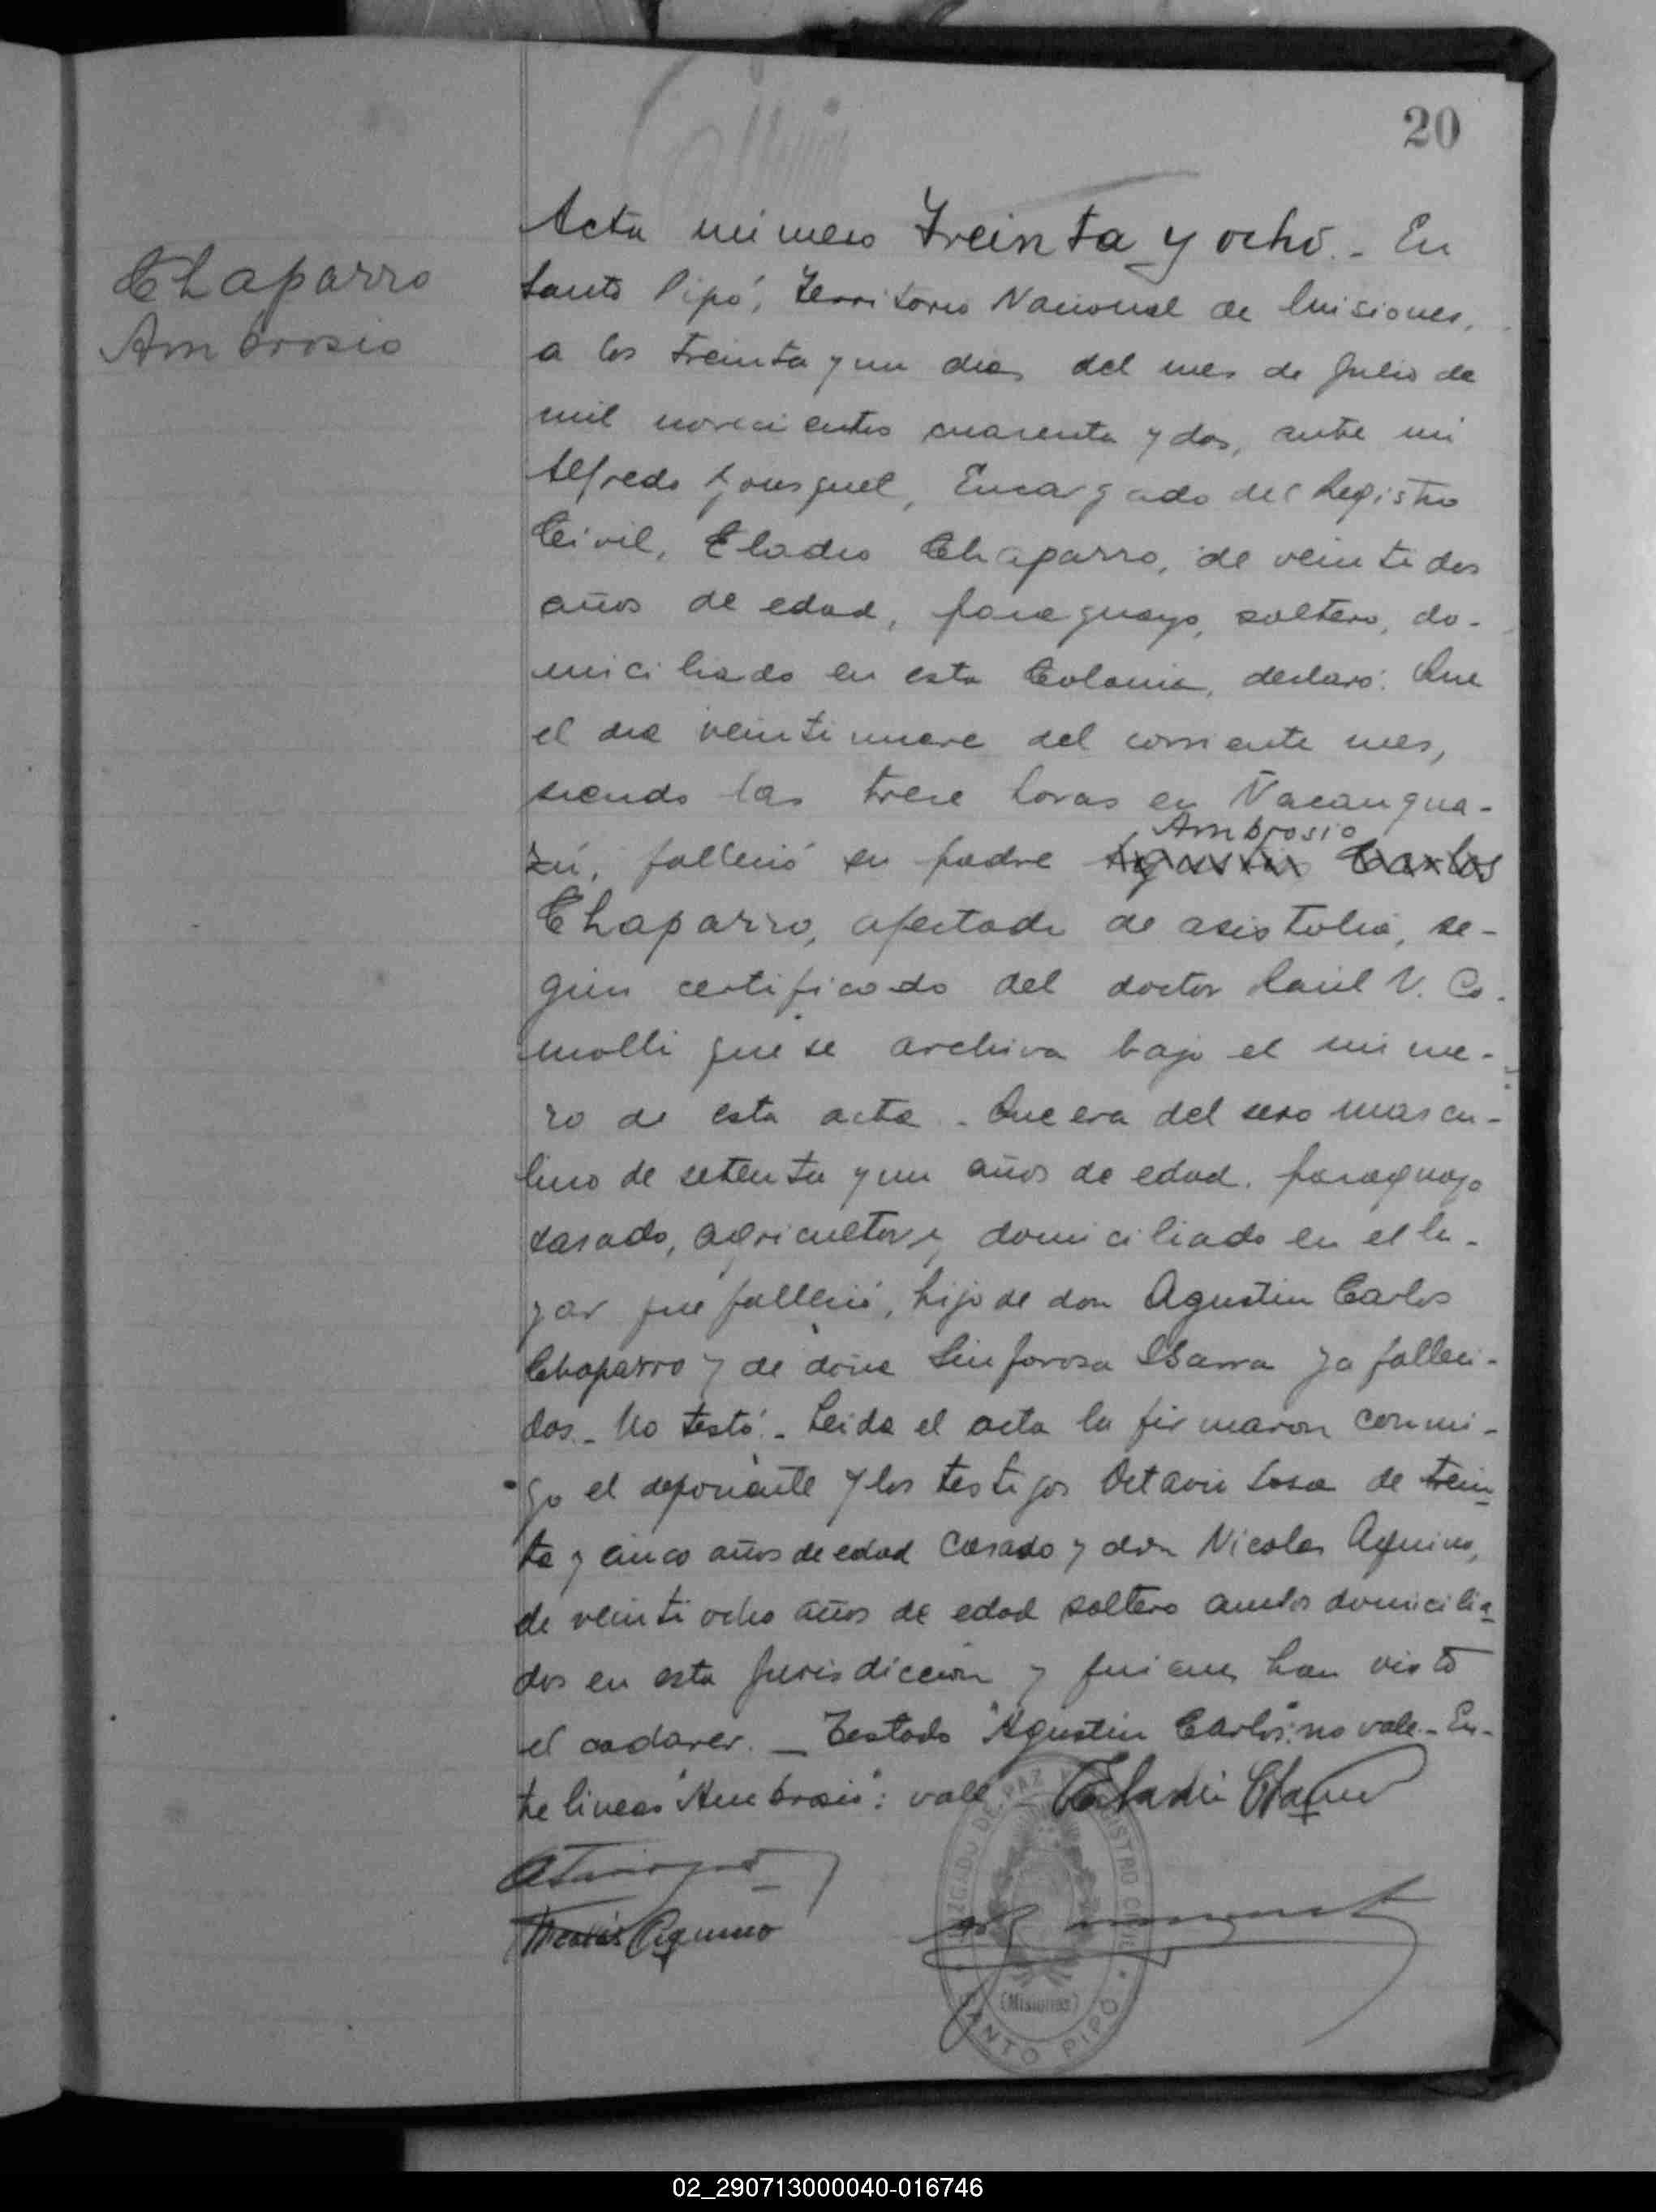 20
Chaparro
Ambrosio
Acta número Treinta y ocho.- En
Santo Pipó, Territorio Nacional de Misiones,
a los treinta y un dias del mes de Julio de
mil novecientos cuarenta y dos, ante mi
Alfredo, Encargado del Registro
Civil, Eladio Chaparro, de veintidos
años de edad, paraguayo, soltero, do-
miciliado en esta Colonia, declaró: Que
el dia veintinueve del corriente mes,
siendo las trece horas en Ñacangua-
Ambrosio
zú, falleció su padre Agustin Carlos
Chaparro, afectado de asistolia, se-
gún certificado del doctor Raúl V. Co-
molli que se archiva bajo el núme-
ro de esta acta.- Que era del sexo mascu-
lino de setenta y un años de edad. paraguayo
casado, agricultor y domiciliado en el lu-
gar que falleció, hijo de don Agustin Carlos
Chaparro y de doña Sinforosa Ibarra ya falleci-
dos.- No testó.- Leida el acta la firmaron conmi-
go el deponente y los testigos Octavio Sosa de trein-
ta y cinco años de edad casado y don Nicolas Aquino,
de veintiocho años de edad soltero ambos domicilia-
dos en esta Jurisdiccion y quienes han visto
el cadaver. - Testado "Agustin Carlos": no vale.- En-
tre lineas "Ambrosio": vale
Eladio Chaparro
Nicolás Aquino
JUZGADO DE PAZ Y REGISTRO CIVIL
(Misiones)
SANTO PIPÓ
02_290713000040-016746